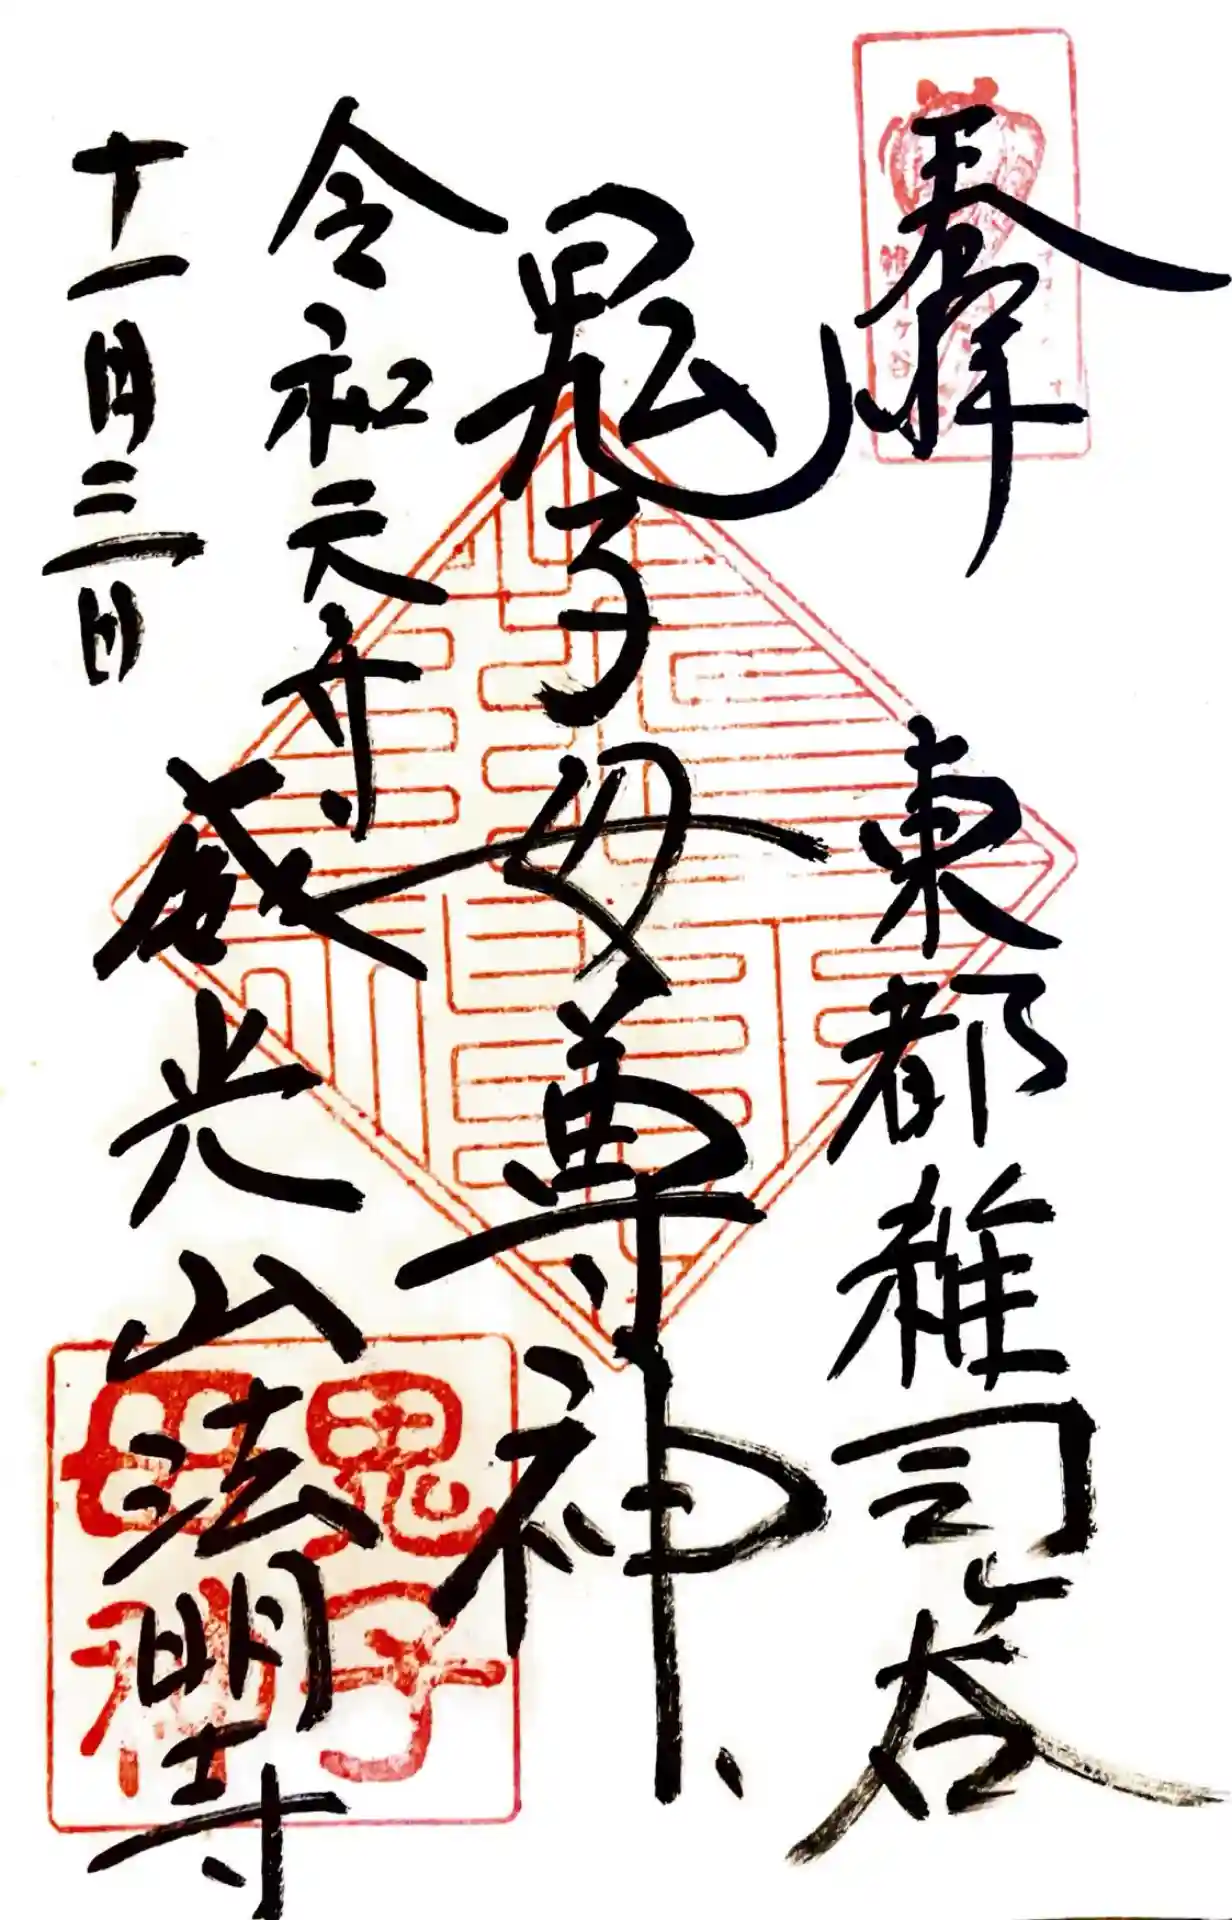 奉拝
東都雑司ヶ谷
鬼子母尊神
令和元年
十一月三日
威光山法明寺
雑司ケ谷
鬼子
母神